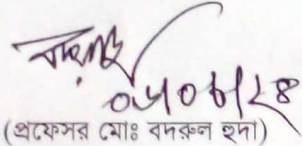 ০৬/০৮/২৪
(প্রফেসর মোঃ বদরুল হুদা)